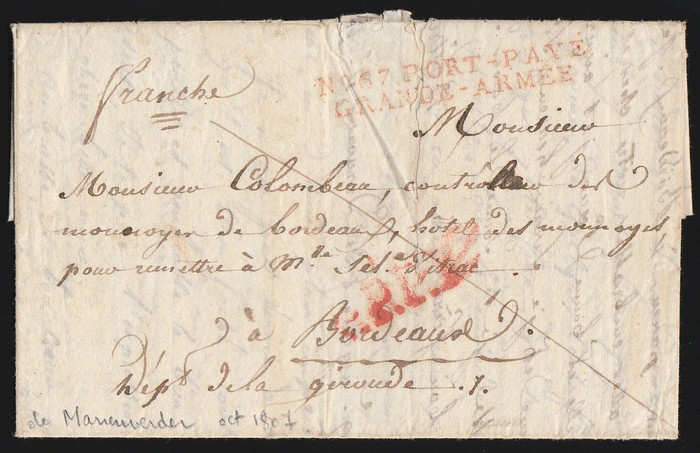 franche
No. 67 PORT-PAYÉ
GRANDE-ARMÉE
Monsieur
Monsieur Colombeau, controlleur des
monnoyes de bordeaux, hôtel des monnoyes
pour remettre à Mlle
P.P.P.P.
à Bordeaux.
Dépt de la gironde .
de Marienwerder oct 1807